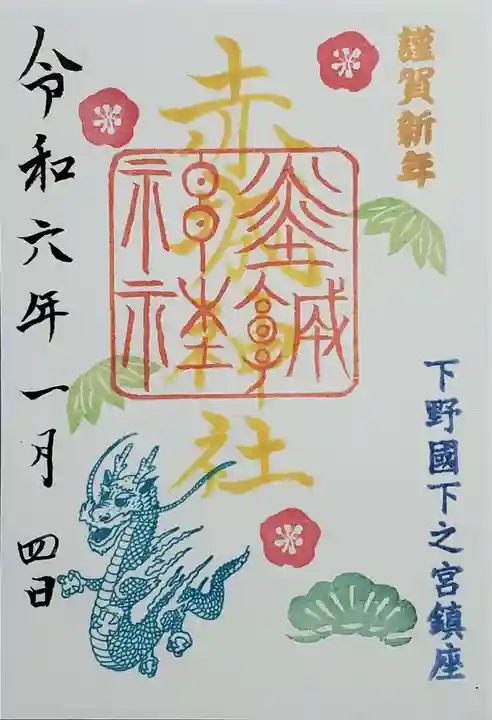 謹賀新年
下野國下之宮鎮座
赤城神社
赤城神社
令和六年一月四日